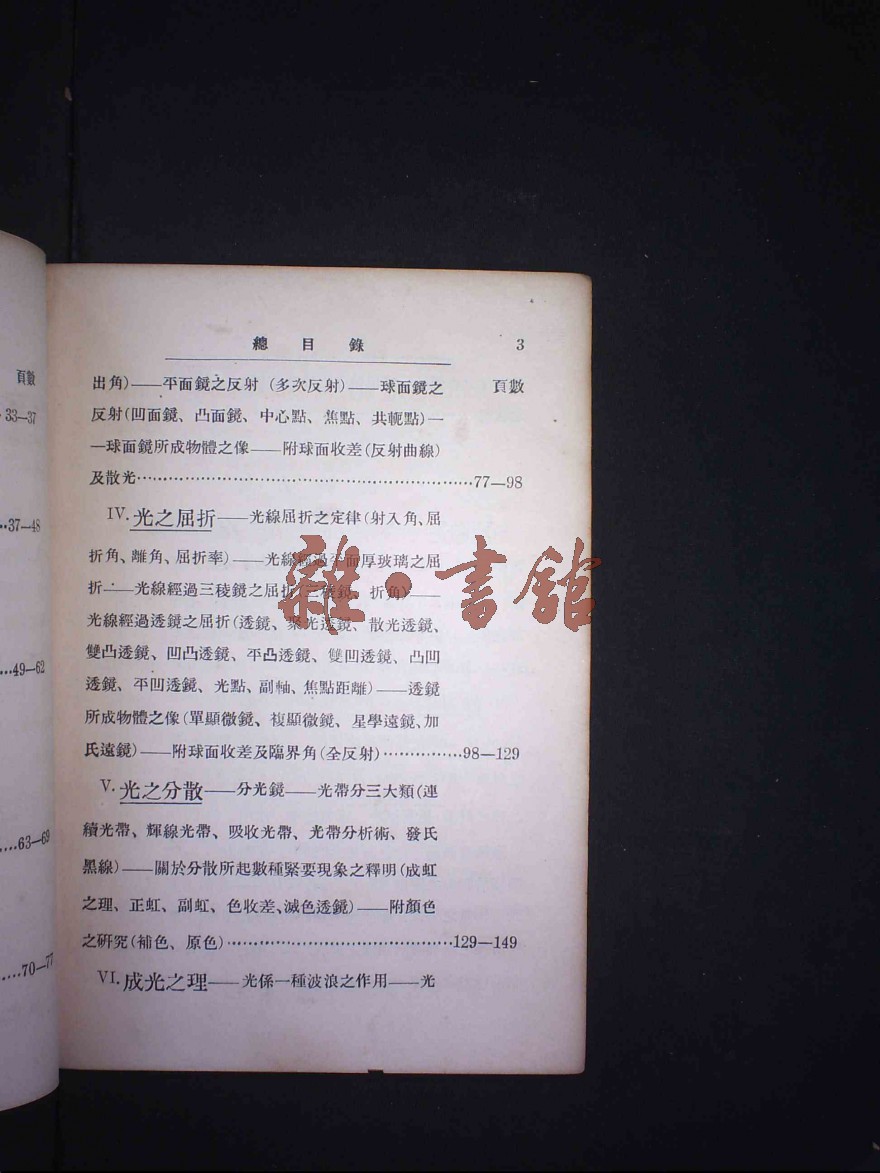 頁數
33—37
37—48
49—62
63—69
70—77
總目錄 3
出角)——平面鏡之反射(多次反射)——球面鏡之 頁數
反射(凹面鏡、凸面鏡、中心點、焦點、共軛點)—
—球面鏡所成物體之像——附球面收差(反射曲線)
及散光………77—98
IV.光之屈折——光線屈折之定律(射入角、屈
折角、離角、屈折率)——光線經過平面厚玻璃之屈
折——光線經過三稜鏡之屈折(三稜鏡、折角)——
光線經過透鏡之屈折(透鏡、聚光透鏡、散光透鏡、
雙凸透鏡、凹凸透鏡、平凸透鏡、雙凹透鏡、凸凹
透鏡、平凹透鏡、光點、副軸、焦點距離)——透鏡
所成物體之像(單顯微鏡、複顯微鏡、星學遠鏡、加
氏遠鏡)——附球面收差及臨界角(全反射)………98—129
V.光之分散——分光鏡——光帶分三大類(連
續光帶、輝線光帶、吸收光帶、光帶分析術、發氏
黑線)——關於分散所起數種緊要現象之釋明(成虹
之理、正虹、副虹、色收差、滅色透鏡)——附顏色
之研究(補色、原色)………129—149
VI.成光之理——光係一種波浪之作用——光
雜·書館